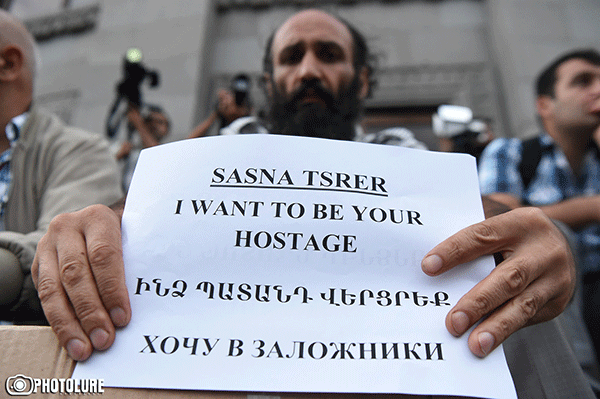 SASNA TSRER
I WANT TO BE YOUR
HOSTAGE
ԻՆՁ ՊԱՏԱՆԴ ՎԵՐՑՐԵՔ
ХОЧУ В ЗАЛОЖНИКИ
PHOTOLURE